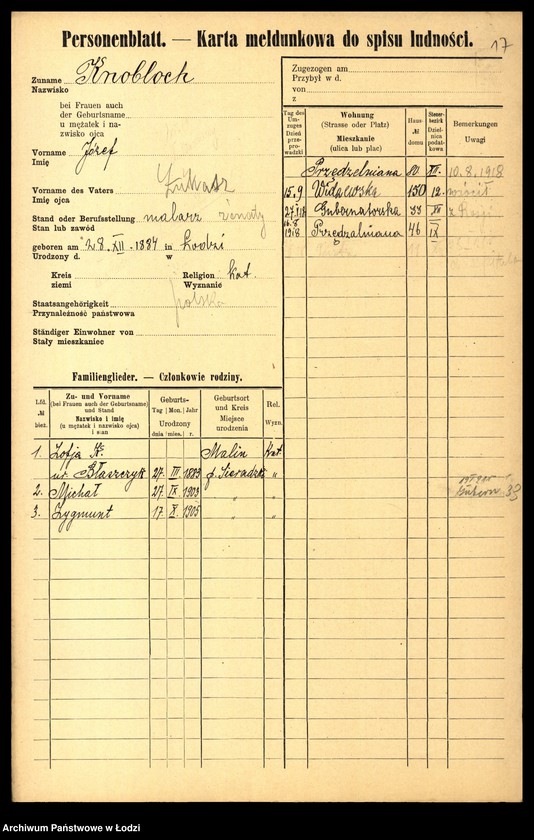 Personenblatt. — Karta meldunkowa do spisu ludności.
17
Zuname Knobloch
Nazwisko
bei Frauen auch
der Geburtsname
u mężatek i na-
zwisko ojca
Vorname Józef
Imię
Vorname des Vaters Łukasz
Imię ojca
Stand oder Berufsstellung malarz żonaty
Stan lub zawód
geboren am 28. XII. 1884 in Łodzi
Urodzony d. w
Kreis Religion Kat.
ziemi Wyznanie
Staatsangehörigkeit polska
Przynależność państwowa
Ständiger Einwohner von
Stały mieszkaniec
Zugezogen am
Przybył w d.
von
z
Tag des Um-zuges Dzień prze-prowadzki
Wohnung (Strasse oder Platz) Mieszkanie (ulica lub plac)
Haus-№ domu
Steuer-bezirk Dzielnica podatkowa
Bemerkungen Uwagi
Przędzelniana XII. 10.8.1918
15.9 Widzewska 150 12. wrócił
Gubernatorska 33 XII z
16.8 1918 Przędzalniana 46 IX
Gubern. 33
Familienglieder. — Członkowie rodziny.
Lfd. № bież.
Zu- und Vorname (bei Frauen auch der Geburtsname) und Stand Nazwisko i imię (u mężatek i nazwisko ojca) i stan
Geburts- Tag Mon. Jahr Urodzony dnia mies. r.
Geburtsort und Kreis Miejsce urodzenia
Rel. Wyzn.
1. Zofja K. Malin Kat.
ur. Błaszczyk 27. III. 1883 p. Sieradzki „
2. Michał 27. IX. 1903 „ „
3. Zygmunt 17 X. 1905 „ „
Archiwum Państwowe w Łodzi